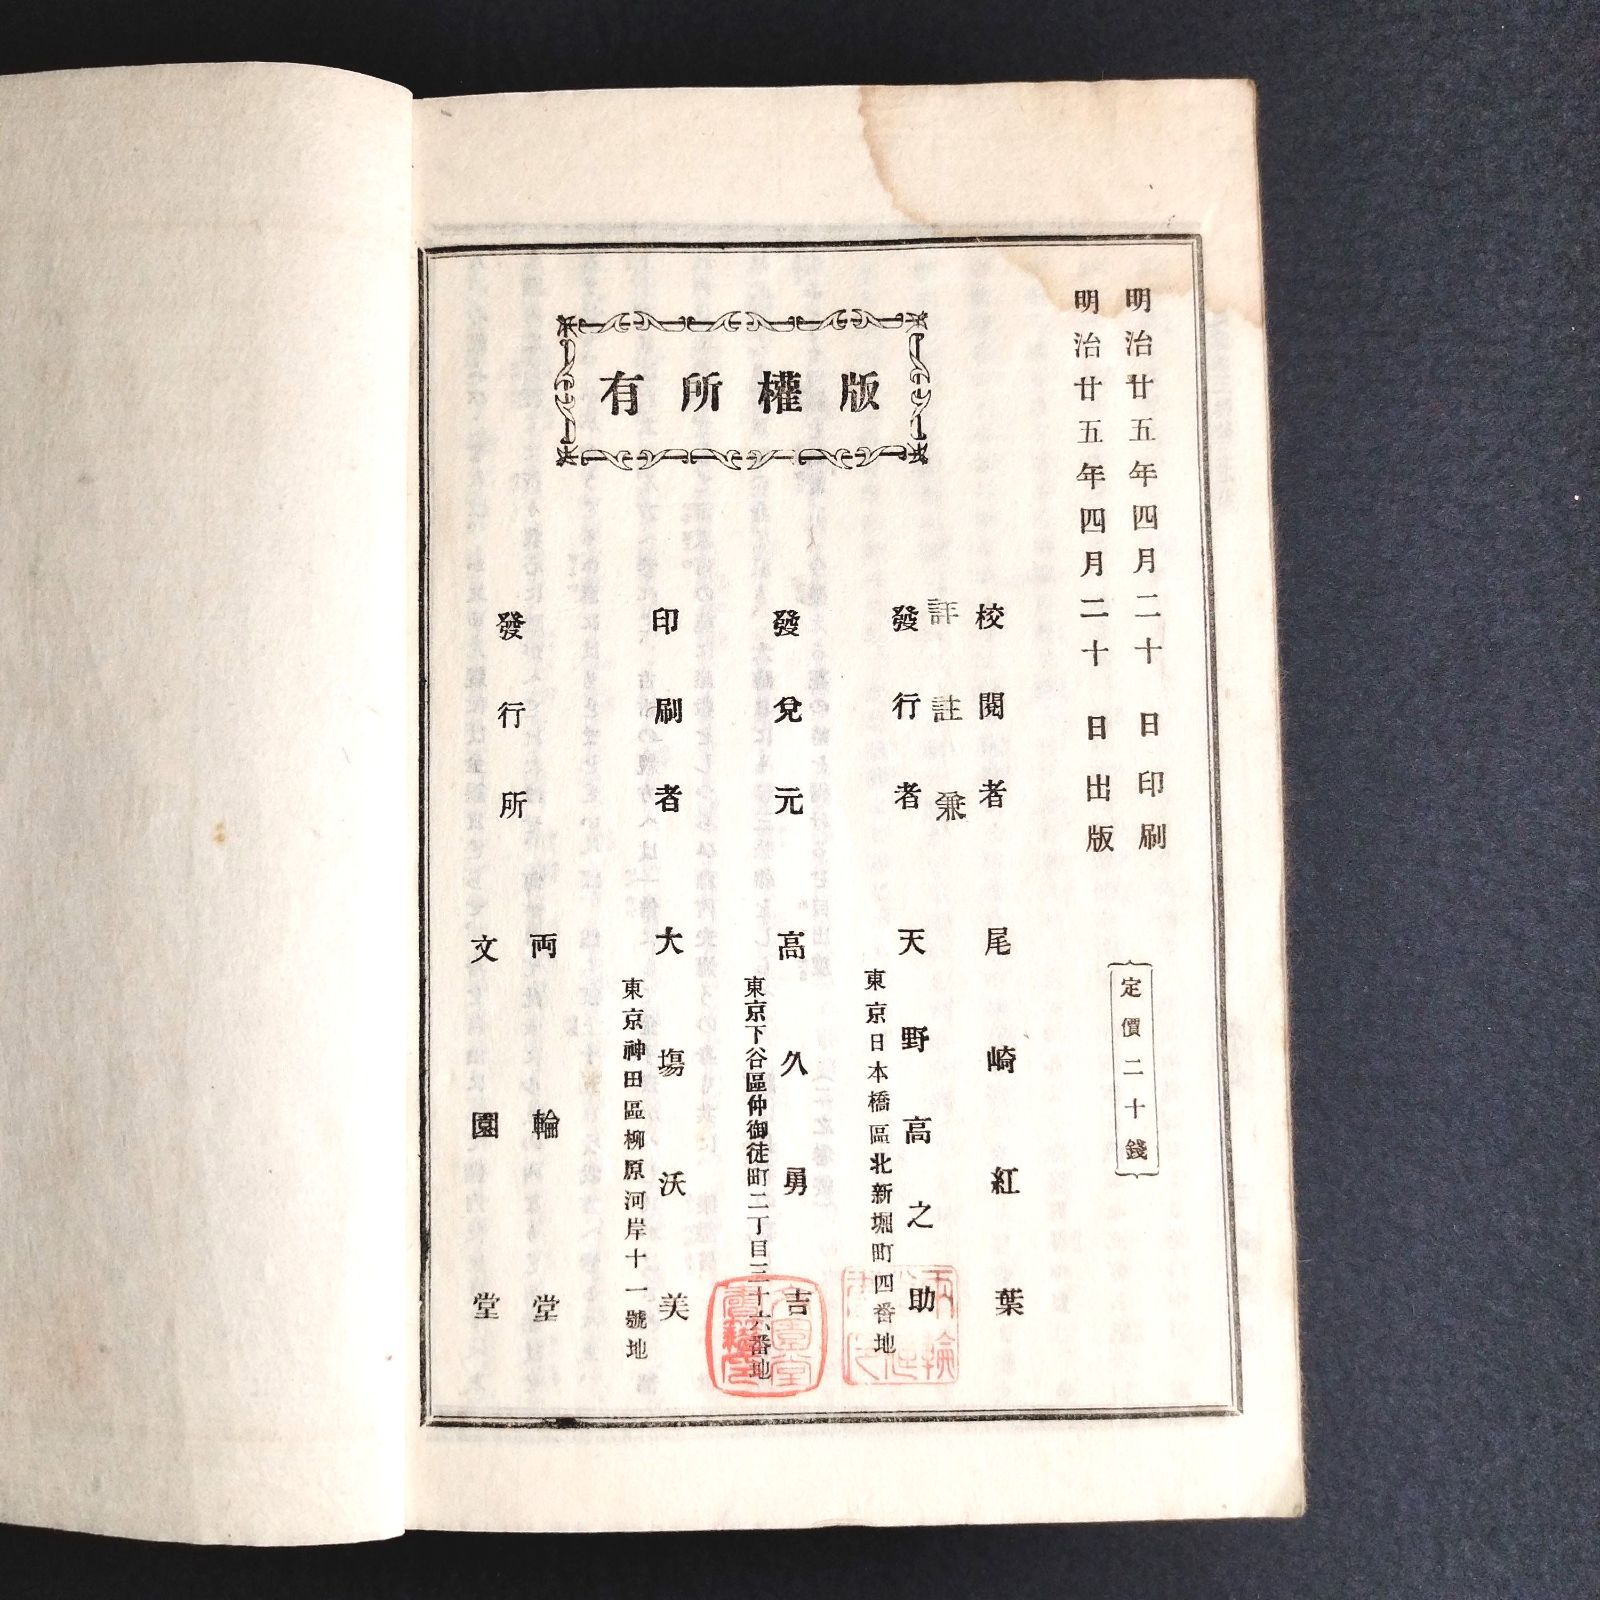 明治廿五年四月二十日印刷
明治廿五年四月二十日出版
定價二十錢
版權所有
校閱者 尾崎紅葉
評註兼
發行者 天野高之助
東京日本橋區北新堀町四番地
發兌元 高久勇吉
東京下谷區仲御徒町二丁目三十六番地
印刷者 大塲沃美
東京神田區柳原河岸十一號地
發行所
両輪堂
文園堂